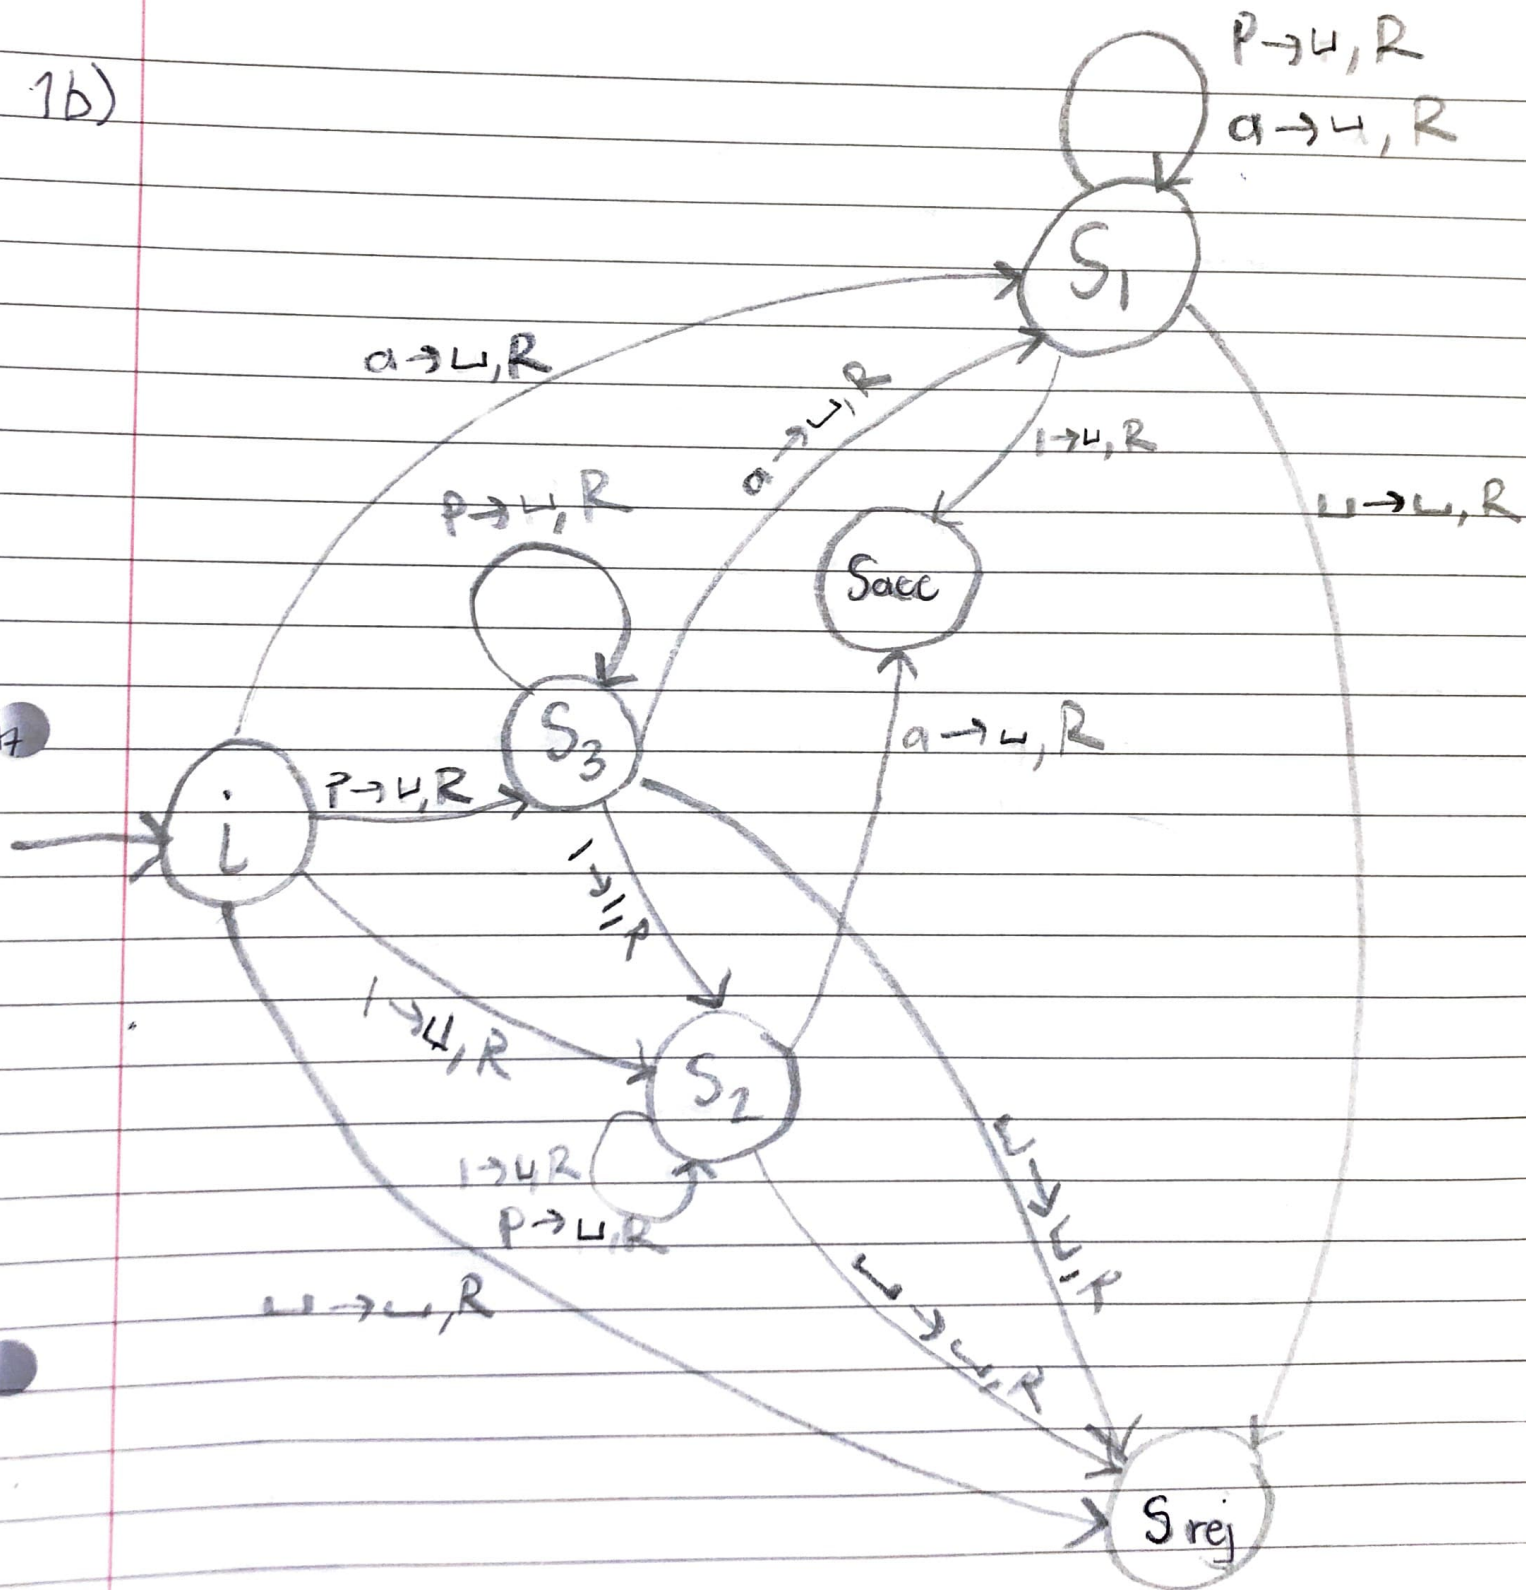 1b)
P→⊔,R
a→⊔,R
S1
a→⊔,R
a→⊔,R
1→⊔,R
P→⊔,R
⊔→⊔,R
Sacc
S3
a→⊔,R
P→⊔,R
i
1→⊔,R
1→⊔,R
S2
1→⊔,R
P→⊔,R
⊔→⊔,R
⊔→⊔,R
⊔→⊔,R
Srej